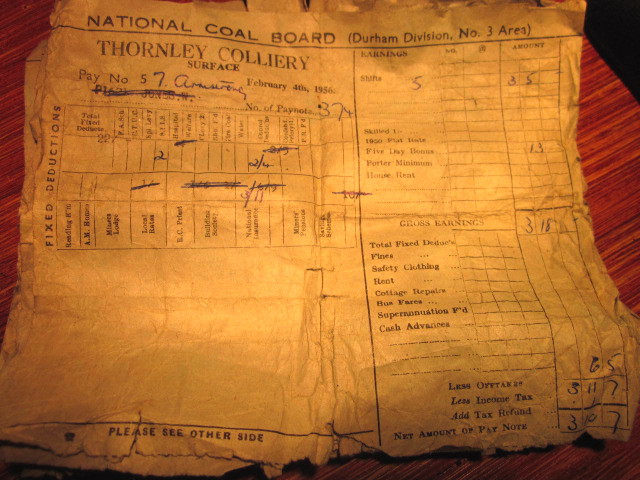 NATIONAL COAL BOARD (Durham Division, No. 3 Area)
THORNLEY COLLIERY
SURFACE
Pay No 57. Armstrong February 4th, 1956.
No. of Paynote 374
FIXED DEDUCTIONS
Total Fixed Deducts.
2 2/4
9/11
Reading R'm
A.M. Homes
Miners Lodge
Local Rates
R.C. Priest
Building Society
National Insurance
Miners' Pensions
Savings Scheme
PLEASE SEE OTHER SIDE
EARNINGS NO. AMOUNT
Shifts 5 3 5
Skilled to
1950 Flat Rate
Five Day Bonus 13
Porter Minimum
House Rent
GROSS EARNINGS 3 18
Total Fixed Deduc's
Fines ...
Safety Clothing ...
Rent ...
Cottage Repairs ...
Bus Fares ...
Superannuation F'd
Cash Advances ...
6 5
LESS OFFTAKES 3 11 7
Less Income Tax 1
Add Tax Refund
NET AMOUNT OF PAY NOTE 3 10 7